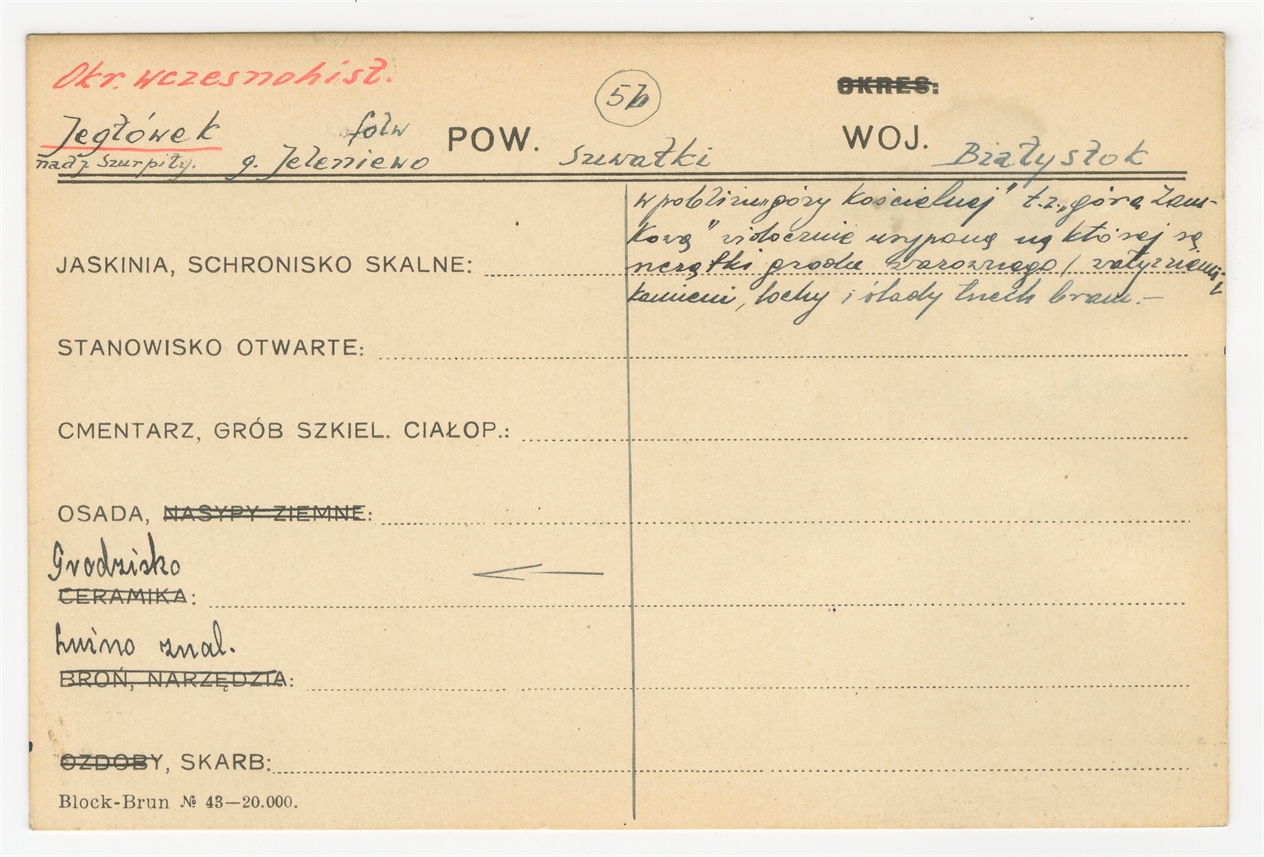 Okr. wczesnohist.
5b
OKRES:
Jegłówek folw POW. Szwałki WOJ. Białystok
nad j. Szurpiły. g. Jeleniewo
w pobliżu „góry Kościelnej" t.z. „góra Zam-
kową" widocznie usypaną na której są
szczątki grodu warownego / wały z ziemi i
kamieni, lochy i ślady trzech bram.—
JASKINIA, SCHRONISKO SKALNE:
STANOWISKO OTWARTE:
CMENTARZ, GRÓB SZKIEL. CIAŁOP.:
OSADA, NASYPY ZIEMNE:
Grodzisko
CERAMIKA:
Luźno znal.
BROŃ, NARZĘDZIA:
OZDOBY, SKARB:
Block-Brun № 43—20.000.